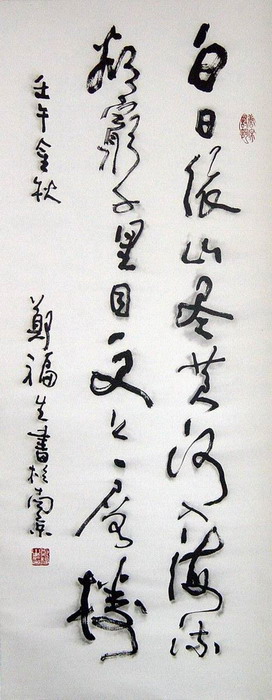 白日依山尽黄河入海流
欲窮千里目更上一層樓
壬午金秋 鄭福生書於南京